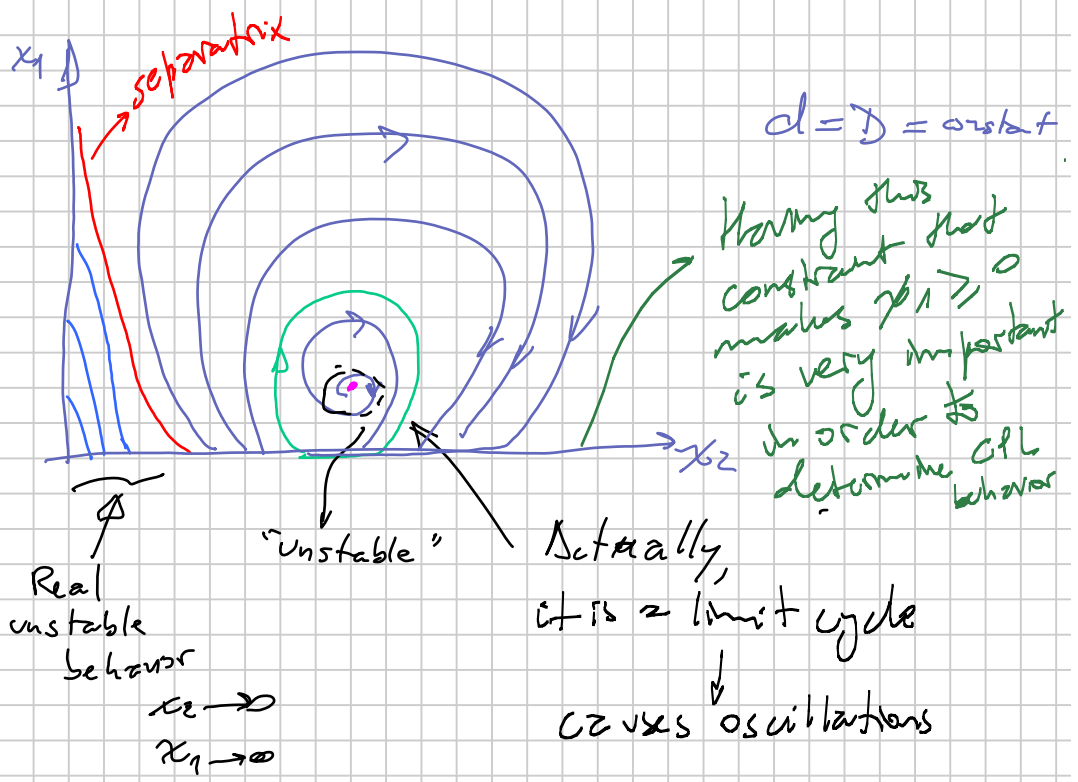 x₁
separatrix
d = D = constat
Having this
constraint that
makes x₁ ⩾ 0
is very important
in order to
determine CPL
behavior
x₂
"unstable"
Real
unstable
behavior
x₂ → 0
x₁ → ∞
Actually,
it is a limit cycle
causes oscillations